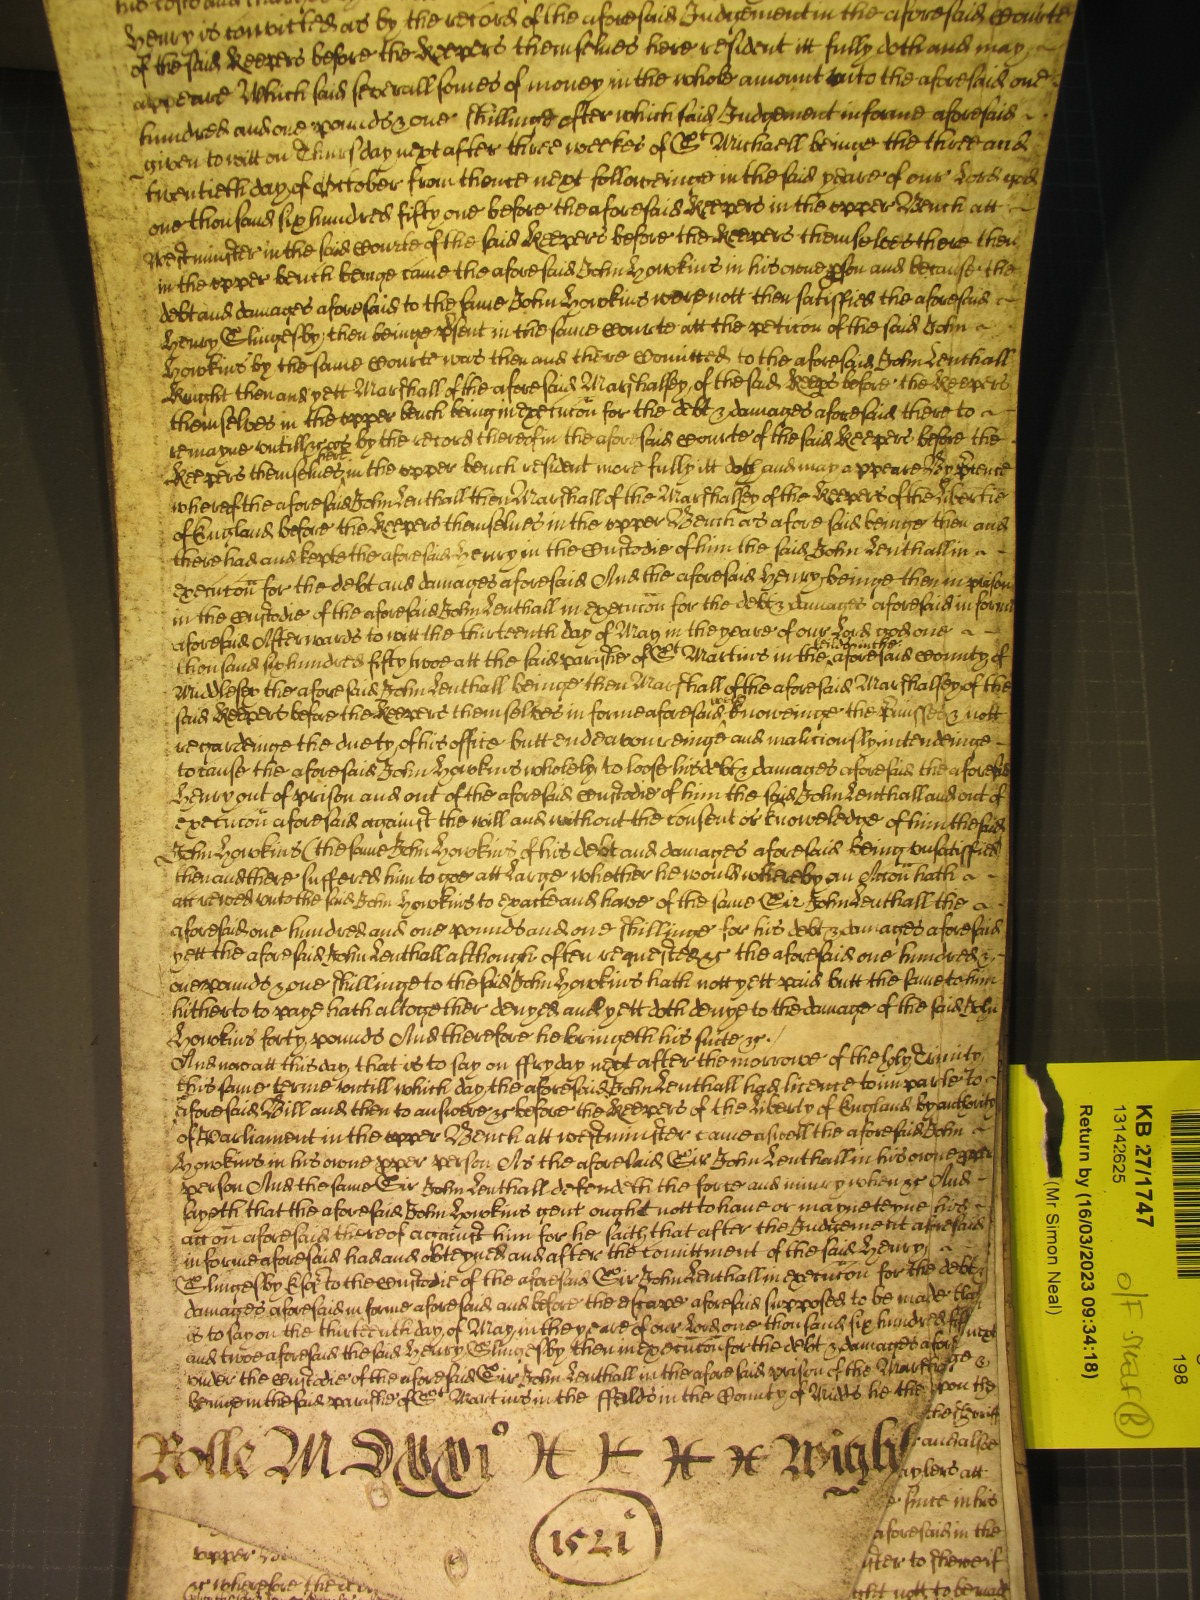 Henry is convicted as by the record of the aforesaid Judgement in the aforesaid Courte
of the said Keepers before the Keepers themselves here resident itt fully doth and may
appeare Which said severall somes of money in the whole amount unto the aforesaid one
hundred and one pounds & one shillinge after which said Judgement in forme aforesaid
given to witt on Thursday next after three weekes of St Michaell beinge the three and
twentieth day of October from thence next followeinge in the said yeare of our Lord god
one thousand six hundred fifty one before the aforesaid Keepers in the upper Bench att
Westminster in the said Courte of the said Keepers before the Keepers themselves there then
in the upper bench beinge came the aforesaid John Howkins in his owne pson and because the
debt and damages aforesaid to the same John Howkins were nott then satisfied the aforesaid
Henry Slingesby then beinge psent in the same Courte att the peticon of the said John
Howkins by the same Courte was then and there Comitted to the aforesaid John Lenthall
Knight then and yett Marshall of the aforesaid Marshalsey of the said Keeps before the Keepers
themselves in the upper bench being in execucon for the debt & damages aforesaid there to
remayne untill &c as by the record thereof in the aforesaid Courte of the said Keepers before the
Keepers themselves here in the upper bench resident more fully itt doth and may appeare By ptence
whereof the aforesaid John Lenthall then Marshall of the Marshalsey of the Keepers of the libertie
of England before the Keepers themselves in the upper Bench as aforesaid beinge then and
there had and kepte the aforesaid Henry in the Custodie of him the said John Lenthall in
execucon for the debt and damages aforesaid And the aforesaid Henry beinge then in prison
in the Custodie of the aforesaid John Lenthall in execucon for the debt & damages aforesaid in forme
aforesaid Afterwards to witt the thirteenth day of May in the yeare of our Lord god one
thousand six hundred fifty twoe att the said parishe of St Martins in the feilds in the aforesaid County of
Middlesex the aforesaid John Lenthall beinge then Marshall of the aforesaid Marshalsey of the
said Keepers before the Keepers themselves in forme aforesaid well knoweinge the pmisses & nott
regardeinge the duety of his office butt endeavoureinge and maliciously intendeinge
to cause the aforesaid John Howkins wholely to loose his debt & damages aforesaid the aforesaid
Henry out of prison and out of the aforesaid Custodie of him the said John Lenthall and out of
execucon aforesaid against the will and without the consent or knowledge of him the said
John Howkins (the same John Howkins of his debt and damages aforesaid being unsatisfied
then and there suffered him to goe att large whether he would whereby an Accon hath
accrewed unto the said John Howkins to exacte and have of the same Sir John Lenthall the
aforesaid one hundred and one pounds and one shillinge for his debt & damages aforesaid
yett the aforesaid John Lenthall although often requested &c the aforesaid one hundred &
one pounds & one shillinge to the said John Howkins hath nott yett paid butt the same to him
hitherto to paye hath altogether denyed and yett doth denye to the damage of the said John
Howkins forty pounds And therefore he bringeth his suite &c
And now att this day that is to say on ffryday next after the morrowe of the holy Trinity
this same terme untill which day the aforesaid John Lenthall had licence to imparle to
aforesaid Bill and then to answere &c before the Keepers of the liberty of England by authority
of Parliament in the upper Bench att Westminster came aswell the aforesaid John
Howkins in his owne pper person As the aforesaid Sir John Lenthall in his owne pper
person And the same Sir John Lenthall defendeth the force and iniury when &c And
sayeth that the aforesaid John Howkins gent ought nott to have or mayneteyne his
accon aforesaid thereof against him for he saith that after the Judgement aforesaid
in forme aforesaid had and obteyned and after the comittment of the said Henry
Slingesby Esqr to the Custodie of the aforesaid Sir John Lenthall in execucon for the debt
damages aforesaid in forme aforesaid and before the escape aforesaid supposed to be made that
is to say on the thirteenth day of May in the yeare of our Lord one thousand six hundred
and twoe aforesaid the said Henry Slingesby then in execucon for the debt & damages
under the Custodie of the aforesaid Sir John Lenthall in the aforesaid prison of the
beinge in the said parishe of St Martins in the ffeilds in the County of Midds he the
upon the
Rolle M DXXI Wight
1521
and alsoe
aylers att
since in his
aforesaid in the
upper
&c wherefore
KB 27/1747
13142625
Return by (16/03/2023 09:34:18)
(Mr Simon Neal)
198